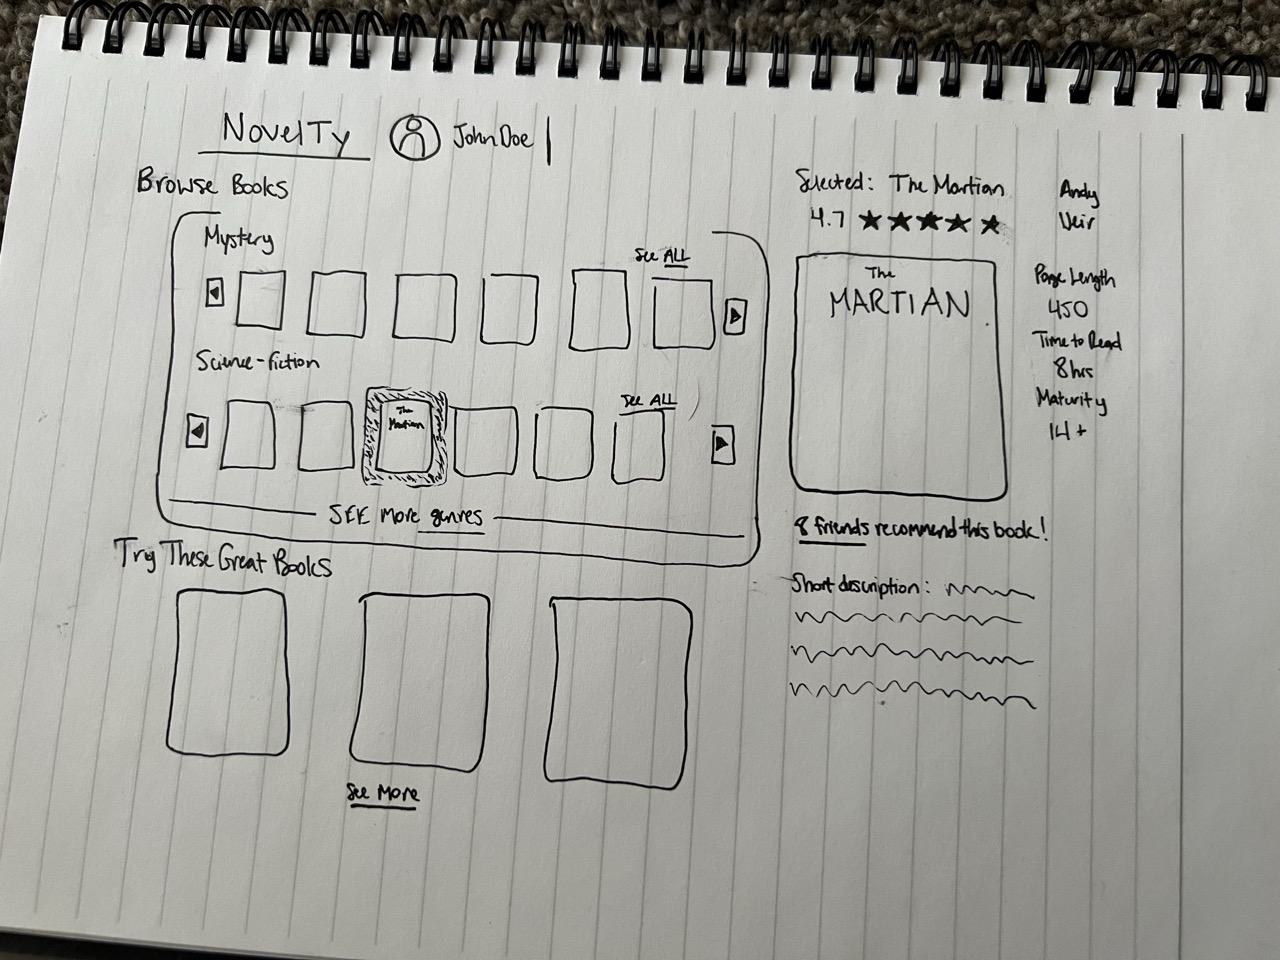 NovelTy
John Doe
Browse Books
Mystery
See ALL
Science-fiction
The
Martian
See ALL
SEE More genres
Try These Great Books
See More
Selected: The Martian
4.7 ★★★★★
Andy
Weir
The
MARTIAN
Page Length
450
Time to Read
8hrs
Maturity
14+
8 friends recommend this book!
Short description: